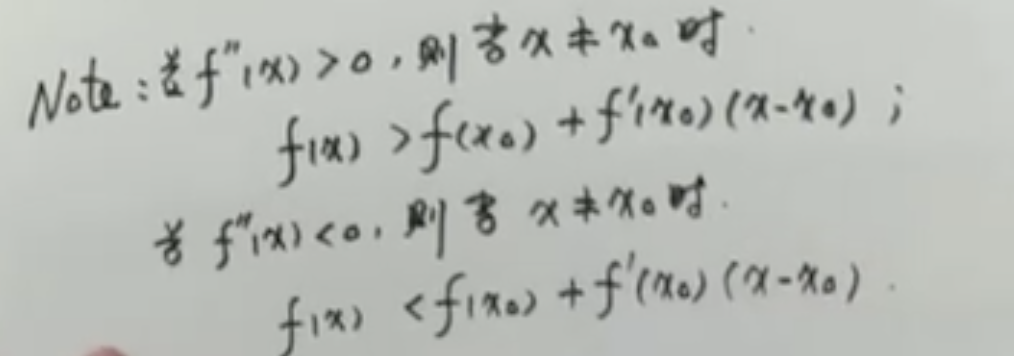 Note: 若 f''(x) > 0, 则当 x ≠ x₀ 时.
f(x) > f(x₀) + f'(x₀)(x-x₀);
若 f''(x) < 0, 则当 x ≠ x₀ 时.
f(x) < f(x₀) + f'(x₀)(x-x₀).